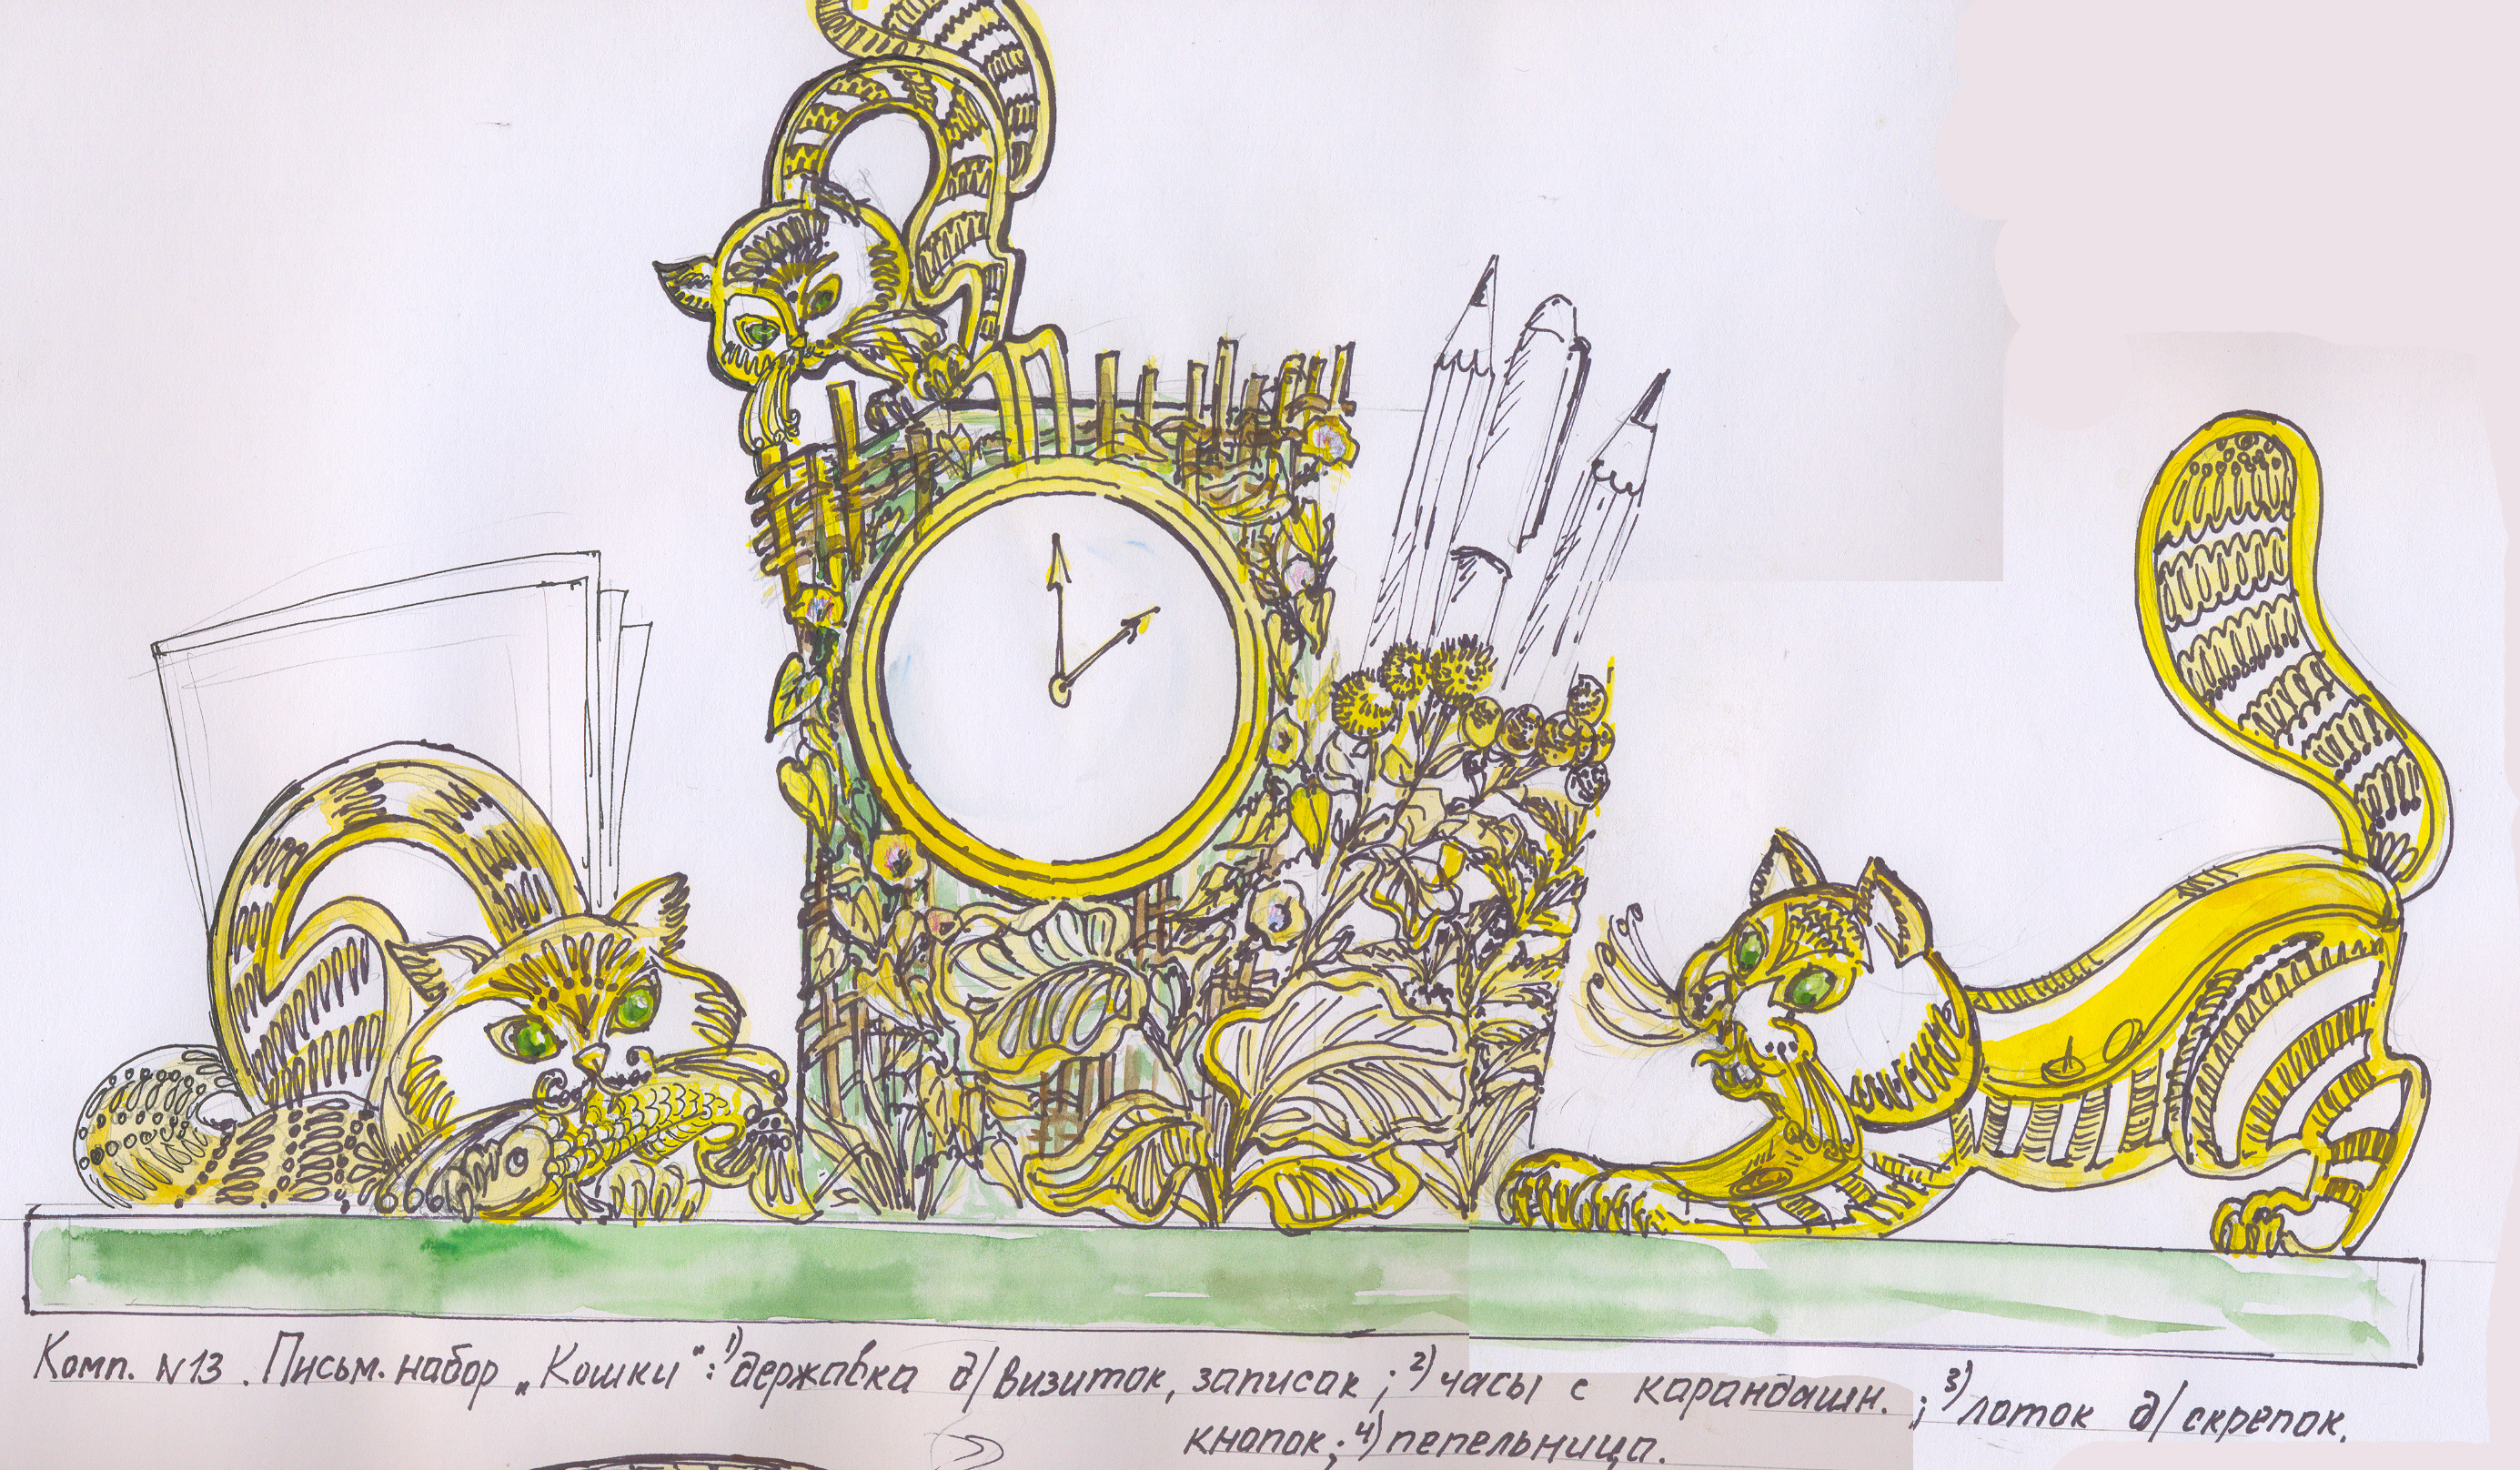 Комп. N13. Письм. набор „Кошки": 1) державка д/визиток, записок; 2) часы с карандашн.; 3) лоток д/скрепок,
кнопок; 4) пепельница.